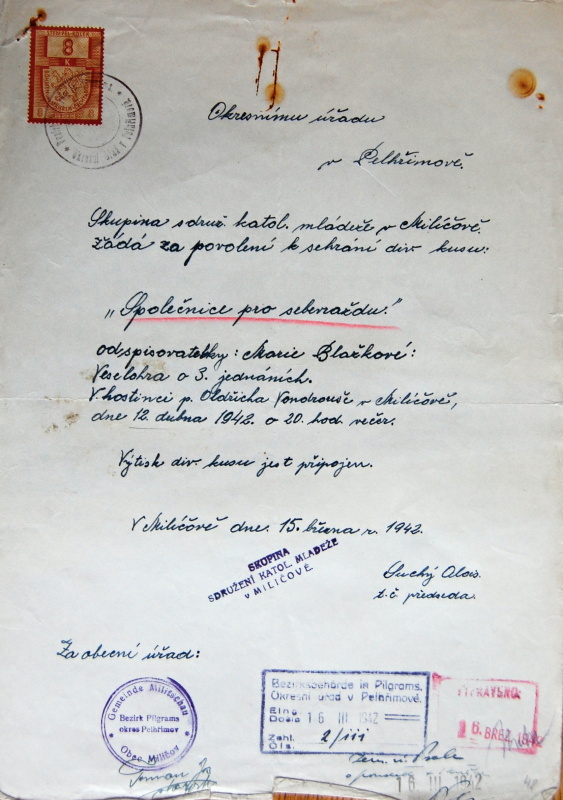 8
K
Okresnímu úřadu
v Pelhřimově.
Skupina sdruž. katol. mládeže v Miličově.
žádá za povolení k sehrání div. kusu:
„Společnice pro sebevraždu."
od spisovatelky: Marie Blažkové:
Veselohra o 3. jednáních.
V hostinci p. Oldřicha Vondrouše v Miličově,
dne 12. dubna 1942. o 20. hod. večer.
Výtisk div. kusu jest připojen.
V Miličově dne. 15. března r. 1942.
SKUPINA
SDRUŽENÍ KATOL. MLADEŽE
v MILIČOVĚ
Suchý Alois.
t. č. předseda.
Za obecní úřad:
Gemeinde Militschau
Bezirk Pilgrams
okres Pelhřimov
Obec Miličov
Bezirksbehörde in Pilgrams.
Okresní úřad v Pelhřimově.
Eing.
Došlo 16 III 1942
Zahl.
Čís. 2/iii
VYPRAVENO:
16. BŘEZ. 1942
16 III 1942